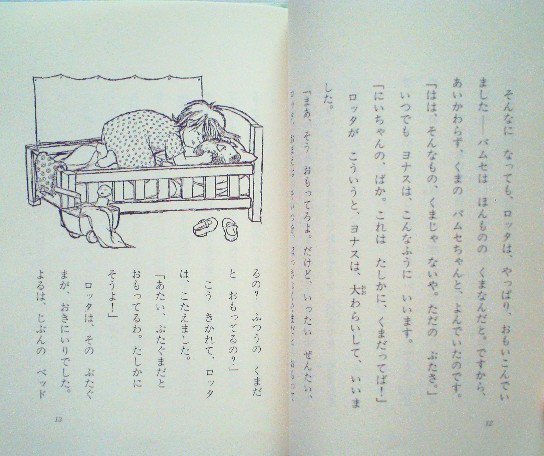 そんなに なっても、ロッタは、やっぱり、おもいこんでい
ました── バムセは ほんものの くまなんだと。ですから、
あいかわらず、くまの バムセちゃんと、よんでいたのです。
「はは、そんなもの、くまじゃ ないや。ただの ぶたさ。」
いつでも ヨナスは、こんなふうに いいます。
「にいちゃんの、ばか。これは たしかに、くまだってば!」
ロッタが こういうと、ヨナスは、大わらいして、いいま
した。
「まあ、そう おもってろよ。だけど、いったい ぜんたい、
12
るの? ふつうの くまだ
と おもってるの?」
こう きかれて、ロッタ
は、こたえました。
「あたい、ぶたぐまだと
おもってるわ。たしかに
そうよ!」
ロッタは、その ぶたぐ
まが おきにいりでした。
よるは、じぶんの ベッド
13